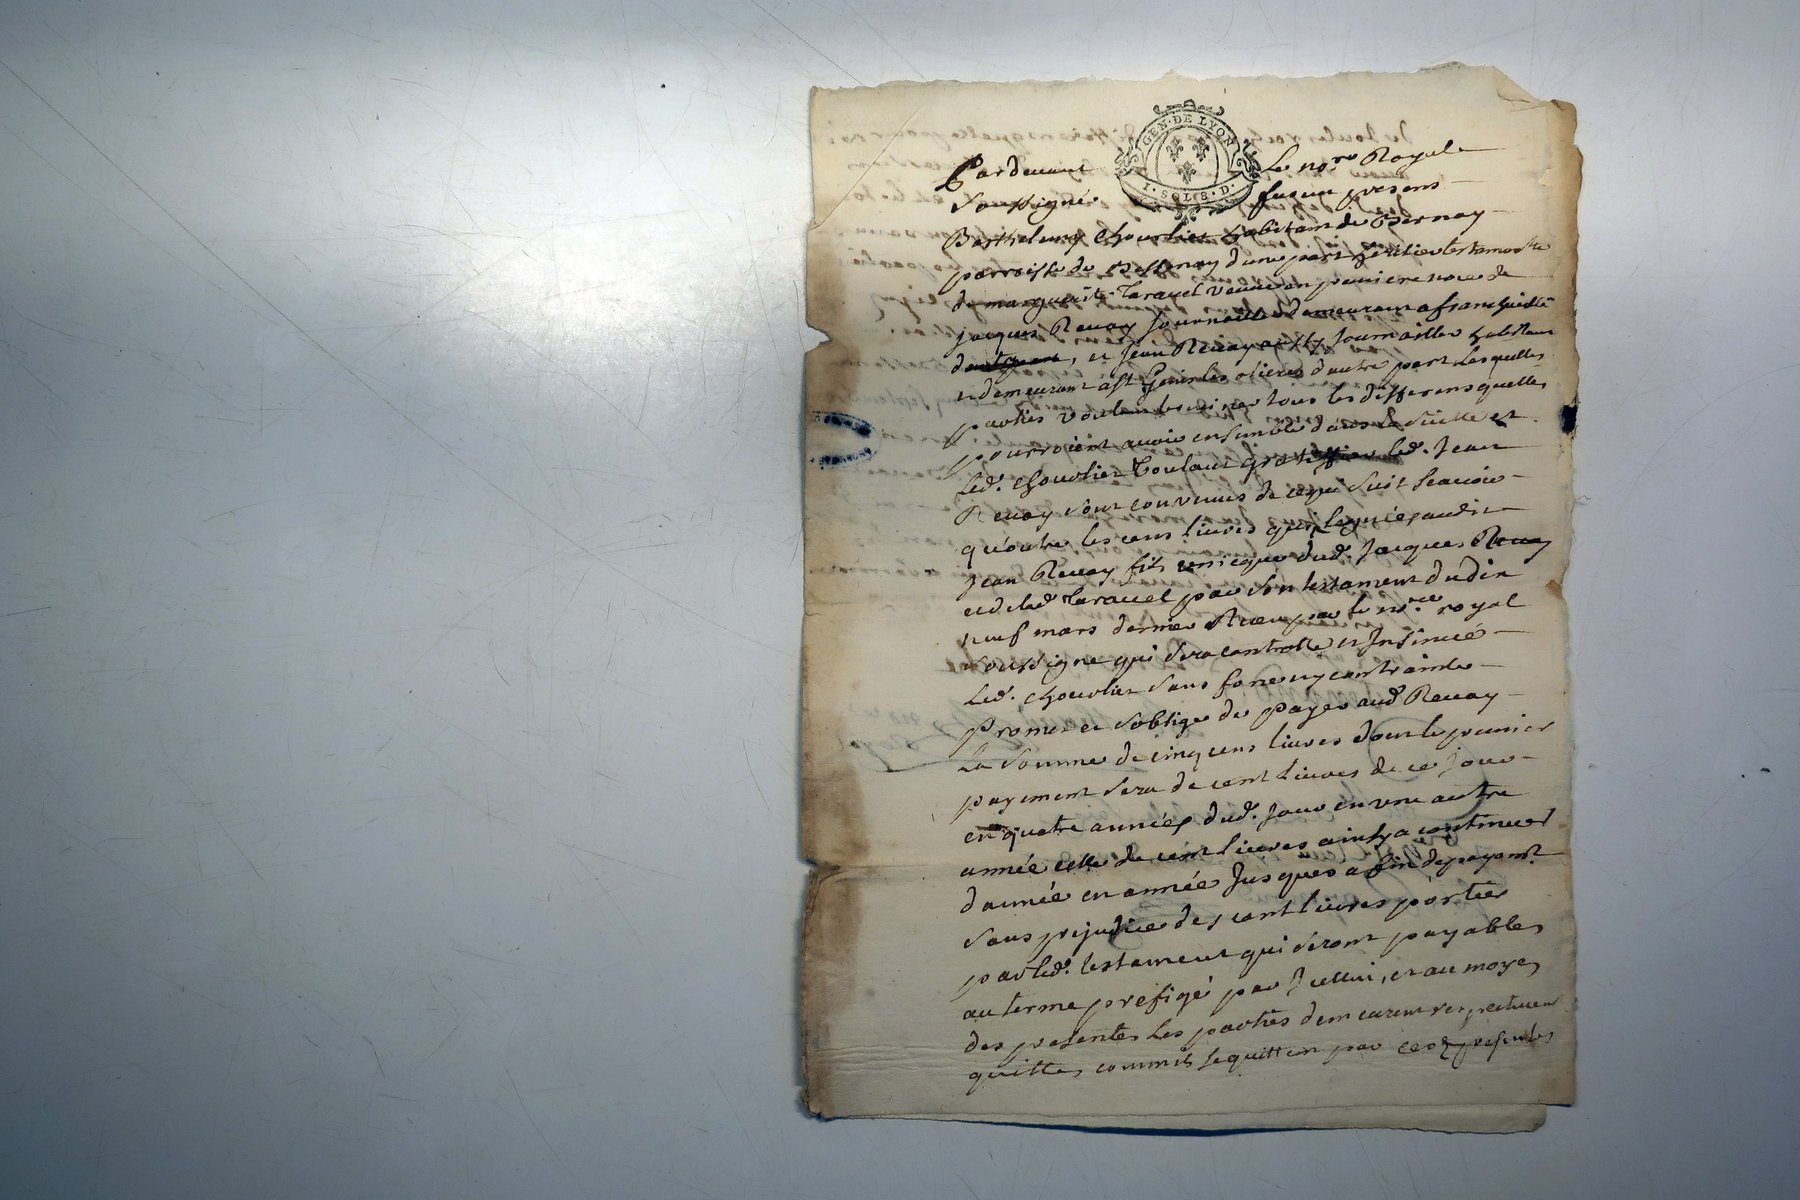 GEN·DE LYON
1·SOLS·D·
Pardevant Le no.re Royal
Soussigné furent presens
Barthelemy Chouvlier habitant de Bernay
parroisse de d'une part heritier testament.re
de marguerite Taravel veuve en premiere noces de
jacques Revay Journallier demeurant a francheville
, et jean Revay aussy Journallier habittant
et demeurant a St Genis les olieres d'autre part Lesquelles
parties voulant terminer tous les differens quelles
pourroient avoir ensemble dans la suitte et
led. chouvlier voulant gratiffier led. Jean
Revay sont convenus de ce qui suit scavoir
qu'outre les cent livres qui leguées audit
jean Revay fils unicque dud. jacques Revay
et de lad. Taravel par son testament du dix
neuf mars dernier Receu par le no.re royal
soussigné qui sera controllé et Insinué
Led. chouvlier sans force ny contrainte
Promet et s'oblige de payer aud. Revay
La somme de cinq cens livres dont le premier
payement sera de cent livres de ce jour
en quatre années dud. jour en une autre
année celle de cent livres ainsy a continuer
d'année en année jusques a fin de payem.t
sans prejudice des cent livres portées
par led. testament qui seront payables
au terme prefigé par Icelluy, et au moyen
des presentes les parties demeurent respectivem.t
quittes comme se quittent par ces presentes